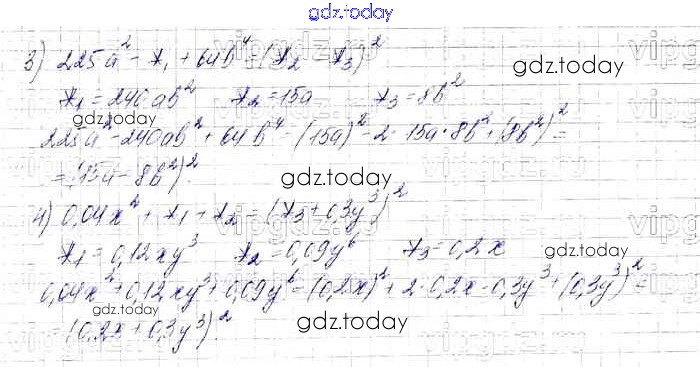 gdz.today
3) 225a² - *₁ + 64b⁴ = (*₂ - *₃)²
gdz.today
*₁ = 240ab² *₂ = 15a *₃ = 8b²
gdz.today
225a² - 240ab² + 64b⁴ = (15a)² - 2·15a·8b² + (8b²)² =
= (15a - 8b²)².
gdz.today
4) 0,04x² + *₁ + *₂ = (*₃ + 0,3y³)²
*₁ = 0,12xy³ *₂ = 0,09y⁶ *₃ = 0,2x
gdz.today
0,04x² + 0,12xy³ + 0,09y⁶ = (0,2x)² + 2·0,2x·0,3y³ + (0,3y³)² =
= (0,2x + 0,3y³)².
gdz.today
gdz.today